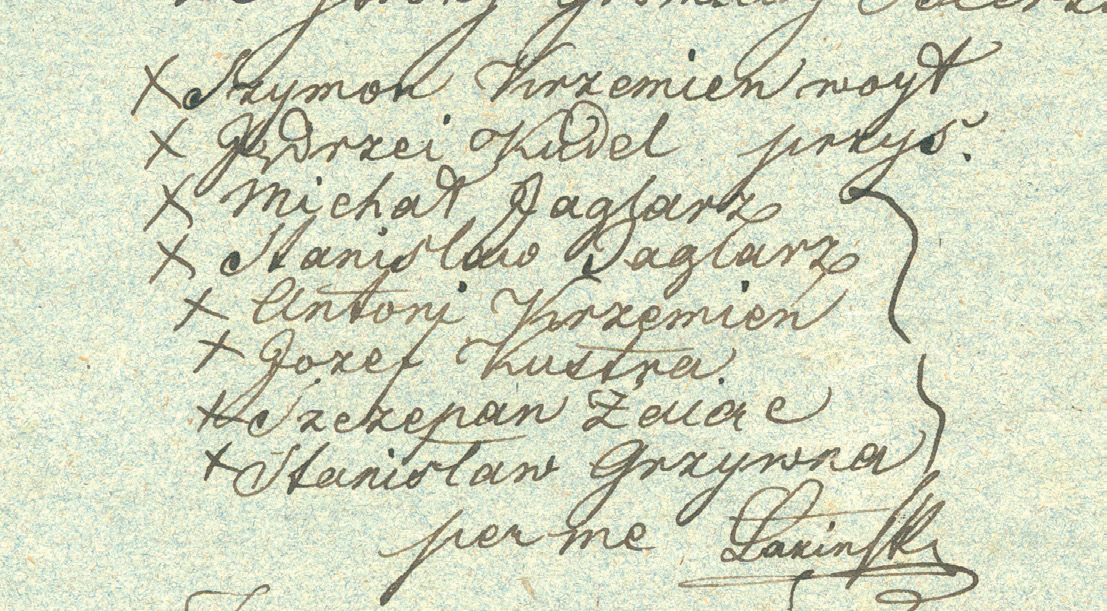 Szymon Krzemien woyt
Jędrzei Kudel przyś.
Michał Jaglarz
Stanisław Jaglarz
Antoni Krzemien
Jozef Kustra
Szczepan Zaiąc
Stanisław Grzywna
per me